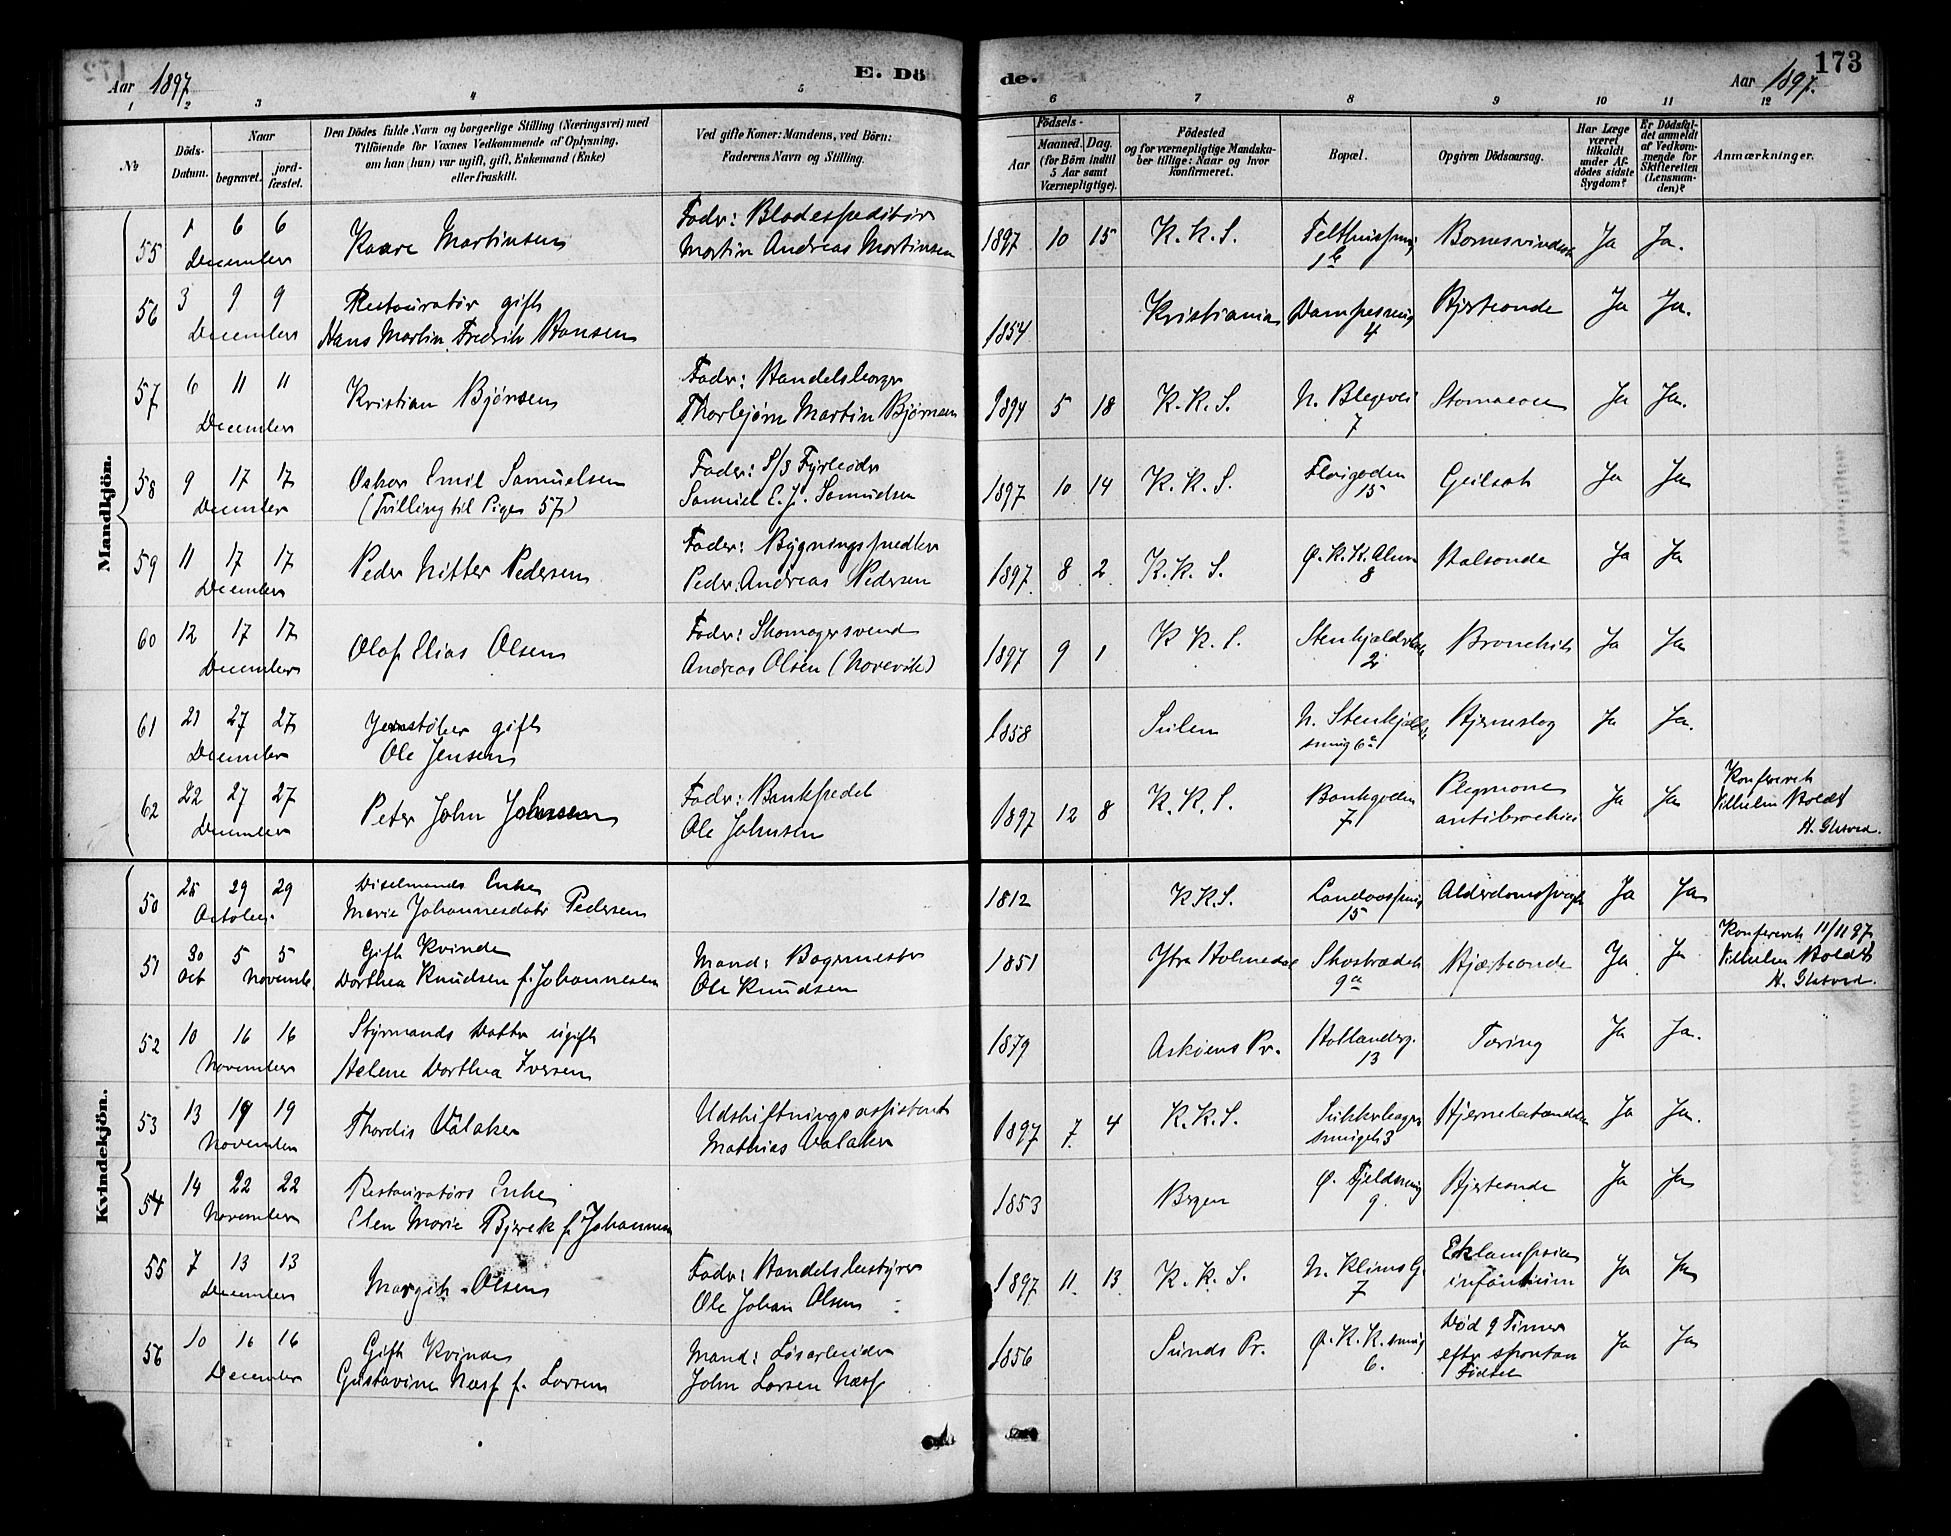 173
Aar 1897
E. Döde.
Aar 1897.
1 2 3 4 5 6 7 8 9 10 11 12
№
Döds-Datum.
Naar
begravet.
jord-fæstet.
Den Dödes fulde Navn og borgerlige Stilling (Næringsvei) med
Tilföiende for Voxnes Vedkommende af Oplysning,
om han (hun) var ugift, gift, Enkemand (Enke)
eller fraskilt.
Ved gifte Koner: Mandens, ved Börn:
Faderens Navn og Stilling.
Födsels-
Aar
Maaned. Dag.
(for Börn indtil
5 Aar samt
Værnepligtige).
Födested
og for værnepligtige Mandska-
ber tillige: Naar og hvor
konfirmeret.
Bopæl.
Opgiven Dödsaarsag.
Har Læge
været
tilkaldt
under Af-
dödes sidste
Sygdom?
Er Dödsfal-
det anmeldt
af Vedkom-
mende for
Skifteretten
(Lensman-
den)?
Anmærkninger.
Mandkjön.
55 1 6 6 December Kaare Martinsen Fader: Bladexpeditør Martin Andreas Martinsen 1897 10 15 K. K. S. 1b Ja Ja.
56 3 9 9 December Restauratør gift Hans Martin Fredrik Hansen 1854 Kristiania 4 Hjerteonde Ja Ja.
57 6 11 11 December Kristian Bjørnsen Fader: Handelsborger Thorbjørn Martin Bjørnsen 1894 5 18 K. K. S. N. Blegevei 7 Ja Ja.
58 9 17 17 December Oskar Emil Samuelsen (Tvilling til Pige 57) Fader: S/S Fyrbøder Samuel E. J. Samuelsen 1897 10 14 K. K. S. 15 Ja Ja
59 11 17 17 December Peder Nitter Pedersen Fader: Peder Andreas Pedersen 1897 8 2 K. K. S. Ø. K. K. Alm 8 Halsonde Ja Ja
60 12 17 17 December Olaf Elias Olsen Fader: Skomagersvend Andreas Olsen (Norevik) 1897 9 1 K K. S. 2 Bronchit Ja Ja
61 21 27 27 December gift Ole Jensen 1858 Sulen N. 6a Hjerneslag Ja Ja.
62 22 27 27 December Peter John Johnsen Fader: Bankbud Ole Johnsen 1897 12 8 K. K. S. Bankgaden 7 Plegmone antibrachii Ja Ja Konfereret Vilhelm Boldt
Kvindekjön.
50 25 29 29 October Enke Marie Johannesdatr Pedersen 1812 K K S. 15 Ja Ja
51 30 5 5 Oct November Gift Kvinde Dorthea Knudsen f. Johannesen Mand: Bagermester Ole Knudsen 1851 Ytre Holmedal Skostrædet 9a Hjerteonde Ja Ja Konfereret 11/11 97 Vilhelm Boldt
52 10 16 16 November Styrmands Datter ugift Helene Dorthea Iversen 1879 Askøens Pr. Hollænderg. 13 Tæring Ja Ja.
53 13 19 19 November Thordis Valaker Udskiftningsassistent Mathias Valaker 1897 7 4 K. K. S. 3 Hjernebetændelse Ja Ja.
54 14 22 22 November Restauratørs Enke Elen Marie Bjerck f. Johannesen 1853 Bergen Ø. Fjeldsmug 9 Hjerteonde Ja Ja
55 7 13 13 December Margit Olsen Fader: Handelsbestyrer Ole Johan Olsen 1897 11 13 K. K. S. N. 7 Eklampsia infantium Ja Ja
56 10 16 16 December Gift Kvinde Gustavine Næss f. Larsen Mand: Løsarbeider John Larsen Næss 1856 Sunds Pr. Ø. K. K. smug 6. Død 9 Timer efter spontan Fødsel Ja Ja